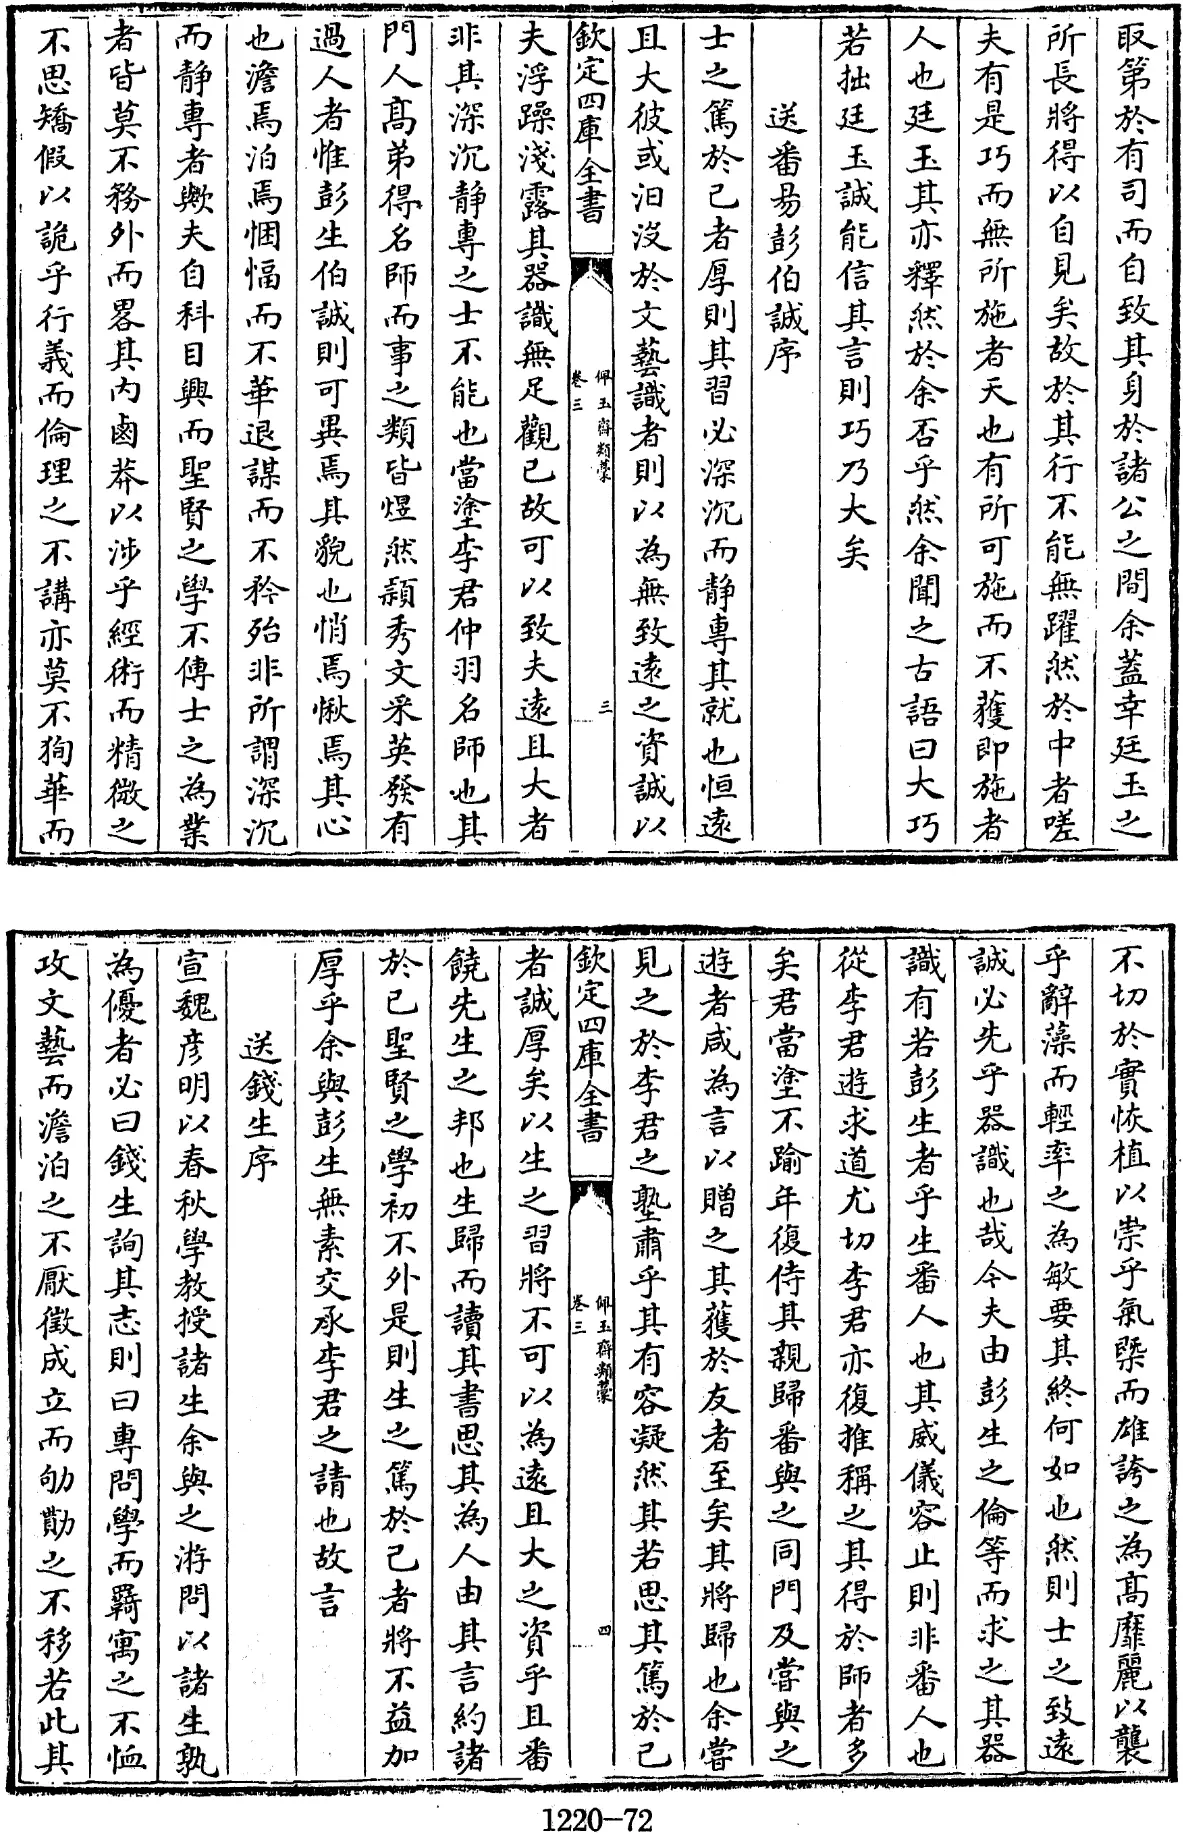 取第於有司而自致其身於諸公之間余蓋幸廷玉之
所長將得以自見矣故於其行不能無躍然於中者嗟
夫有是巧而無所施者天也有所可施而不獲即施者
人也廷玉其亦釋然於余否乎然余聞之古語曰大巧
若拙廷玉誠能信其言則巧乃大矣
送番昜彭伯誠序
士之篤於己者厚則其習必深沉而静專其就也恒遠
且大彼或汨沒於文藝識者則以為無致遠之資誠以
欽定四庫全書
佩玉齋類藳
卷三
三
夫浮躁淺露其器識無足觀已故可以致夫遠且大者
非其深沉静專之士不能也當塗李君仲羽名師也其
門人髙弟得名師而事之類皆煜然頴秀文采英發有
過人者惟彭生伯誠則可異焉其貌也悄焉愀焉其心
也澹焉泊焉悃愊而不華退謀而不矜殆非所謂深沉
而静專者歟夫自科目興而聖賢之學不傳士之為業
者皆莫不務外而畧其内鹵莽以涉乎經術而精微之
不思矯假以詭乎行義而倫理之不講亦莫不狥華而
不切於實恢植以崇乎氣槩而雄誇之為髙靡麗以襲
乎辭藻而輕率之為敏要其終何如也然則士之致遠
誠必先乎器識也哉今夫由彭生之倫等而求之其器
識有若彭生者乎生番人也其威儀容止則非番人也
從李君遊求道尤切李君亦復推稱之其得於師者多
矣君當塗不踰年復侍其親歸番與之同門及嘗與之
遊者咸為言以贈之其獲於友者至矣其將歸也余嘗
見之於李君之塾肅乎其有容凝然其若思其篤於己
欽定四庫全書
佩玉齋類藳
卷三
四
者誠厚矣以生之習將不可以為遠且大之資乎且番
饒先生之邦也生歸而讀其書思其為人由其言約諸
於己聖賢之學初不外是則生之篤於己者將不益加
厚乎余與彭生無素交承李君之請也故言
送錢生序
宣魏彦明以春秋學教授諸生余與之游問以諸生孰
為優者必曰錢生詢其志則曰專問學而羇寓之不恤
攻文藝而澹泊之不厭徴成立而劬勩之不移若此其
1220-72